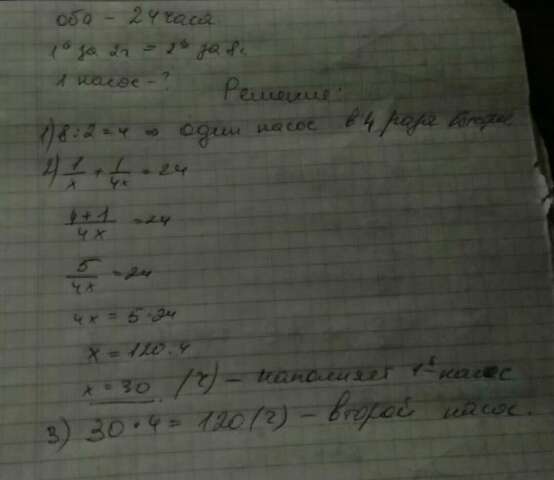 оба - 24 часа
1й за 2ч = 2й за 8ч
1 насос - ?
Решение:
1) 8:2=4 ⇒ один насос в 4 раза быстрее
2) 1/x + 1/4x = 24
4+1/4x = 24
5/4x = 24
4x = 5·24
x = 120·4
x = 30 (ч) - наполняет 1й насос
3) 30·4 = 120(ч) - второй насос.